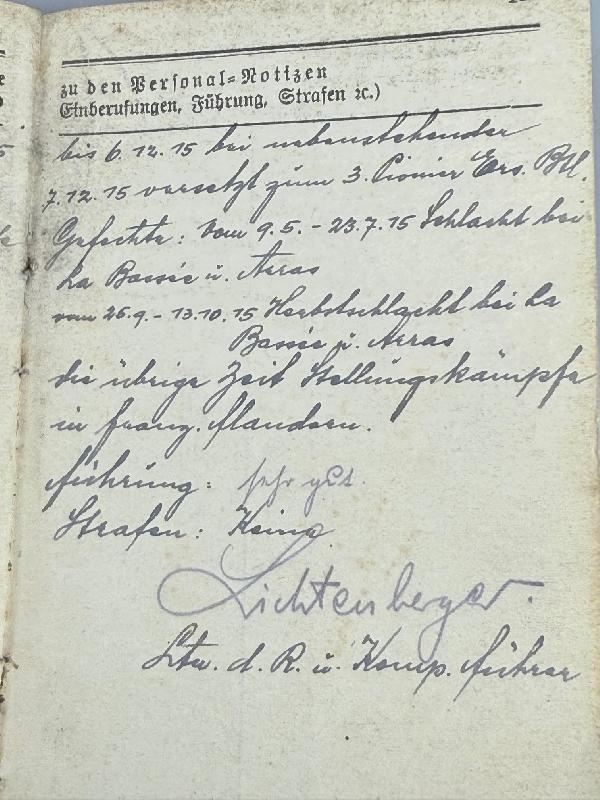 zu den Personal=Notizen
Einberufungen, Führung, Strafen ꝛc.)
bis 6.12.15 bei nebenstehender
7.12.15 versetzt zum 3. Pionier Ers. Btl.
Gefechte: Vom 9.5. – 23.7.15 Schlacht bei
La Bassée u. Arras
vom 25.9. – 13.10.15 Herbstschlacht bei La
Bassée u. Arras
die übrige Zeit Stellungskämpfe
in franz. Flandern.
Führung: sehr gut.
Strafen: Keine
Lichtenberger.
Ltn. d. R. u. Komp. Führer